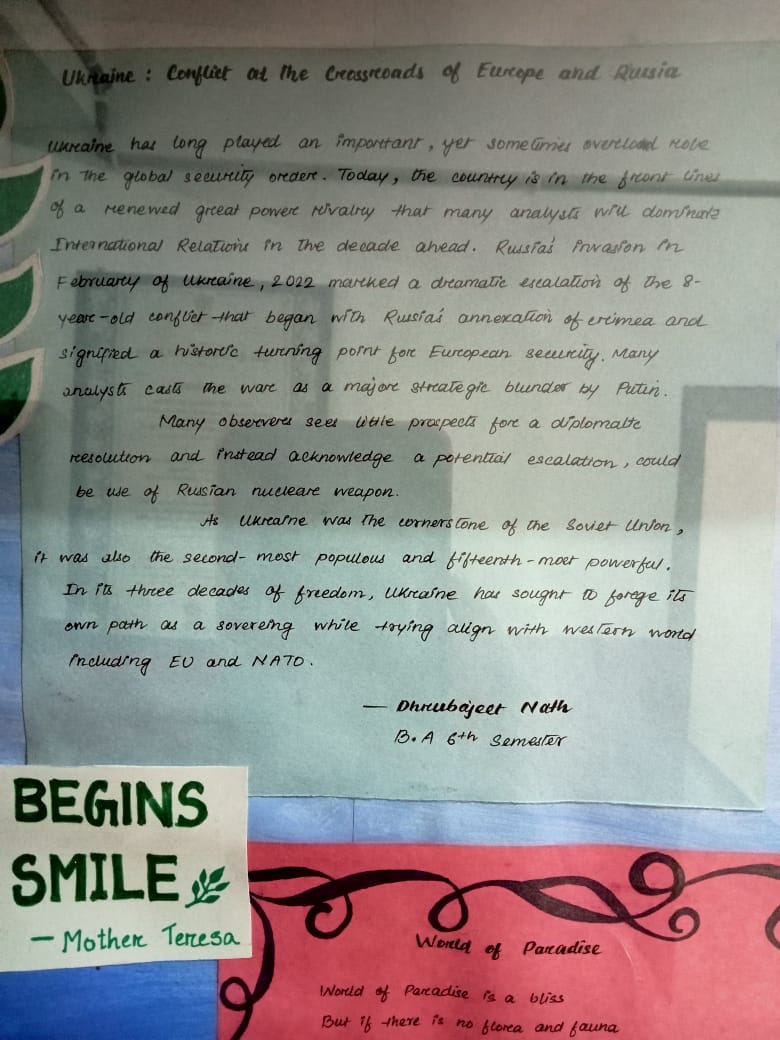 Ukraine : Conflict at the Crossroads of Europe and Russia
Ukraine has long played an important, yet sometimes overlood role
in the global security order. Today, the country is in the front lines
of a renewed great power rivalry that many analysts will dominate
International Relations in the decade ahead. Russia's invasion in
February of Ukraine, 2022 marked a dramatic escalation of the 8-
year-old conflict that began with Russia's annexation of crimea and
signified a historic turning point for European security. Many
analysts casts the war as a major strategic blunder by Putin.
Many observers sees little prospects for a diplomatic
resolution and instead acknowledge a potential escalation, could
be use of Russian nuclear weapon.
As Ukraine was the cornerstone of the Soviet Union,
it was also the second-most populous and fifteenth-most powerful.
In its three decades of freedom, Ukraine has sought to forge its
own path as a sovereing while trying align with western world
including EU and NATO.
— Dhrubajeet Nath
B.A 6th Semester
BEGINS
SMILE
— Mother Teresa
World of Paradise
World of Paradise is a bliss
But if there is no flora and fauna